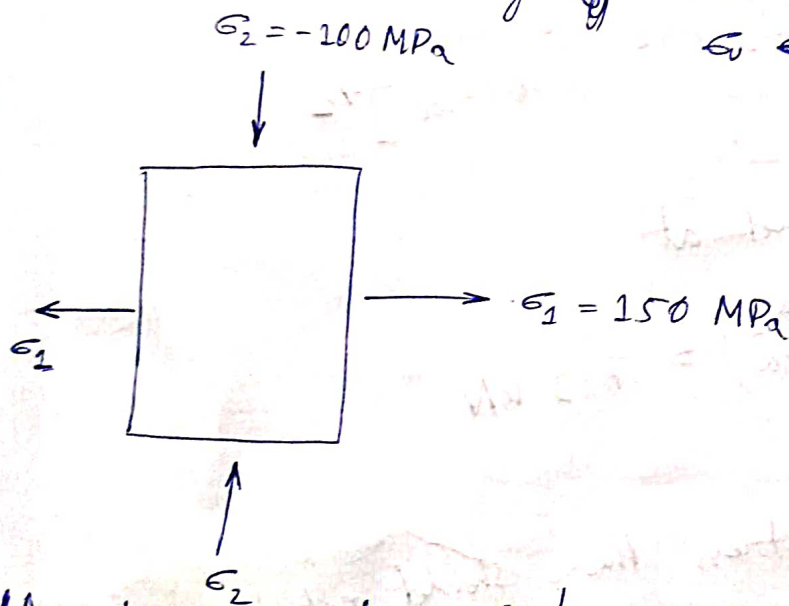 σ2 = -100 MPa
σ1 = 150 MPa
σ1
σ2